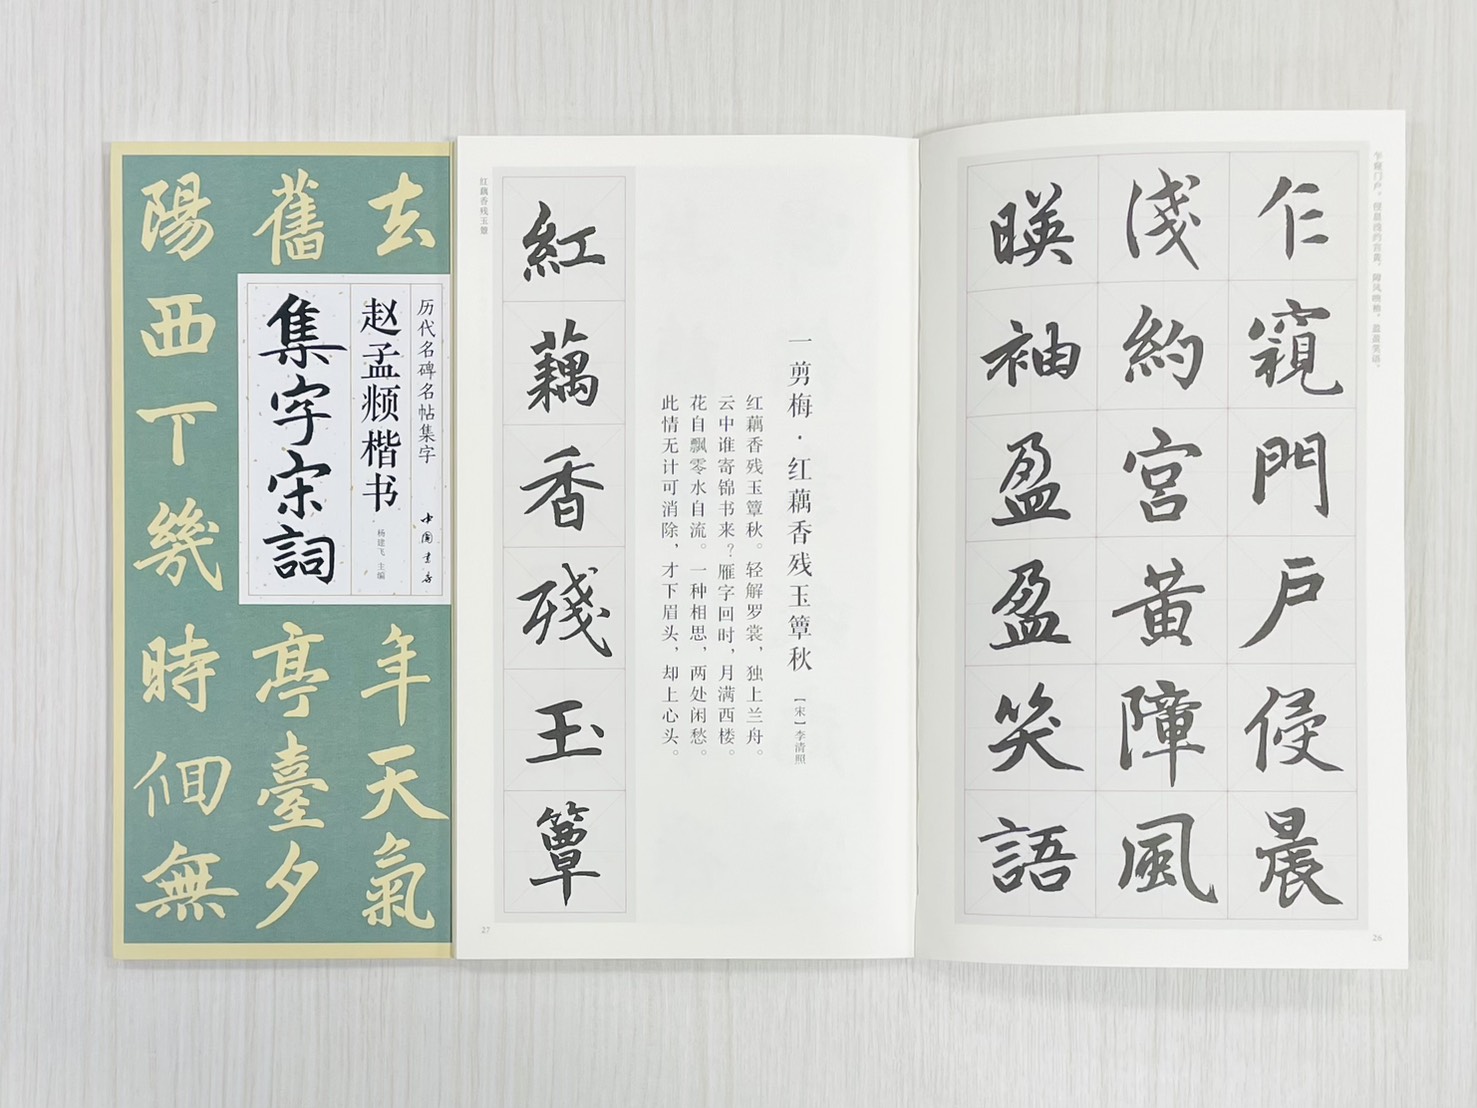 去
舊
陽西下幾時佪無
历代名碑名帖集字
中国书店
赵孟頫楷书
杨建飞 主编
集字宋詞
年天氣
亭臺夕
乍窥门户。侵晨浅约宫黄，障风映袖，盈盈笑语。
乍窺門戶侵晨
淺約宮黃障風
暎袖盈盈笑語
26
一剪梅·红藕香残玉簟秋 [宋]李清照
红藕香残玉簟秋。轻解罗裳，独上兰舟。
云中谁寄锦书来？雁字回时，月满西楼。
花自飘零水自流。一种相思，两处闲愁。
此情无计可消除，才下眉头，却上心头。
紅藕香殘玉簟
红藕香残玉簟
27